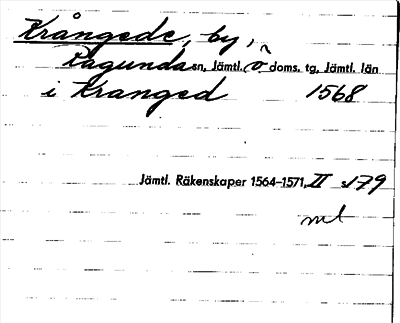 Krångede, by,
Ragunda sn, Jämtl. ö doms. tg, Jämtl. län
i Kranged 1568
Jämtl. Räkenskaper 1564-1571, II s. 179